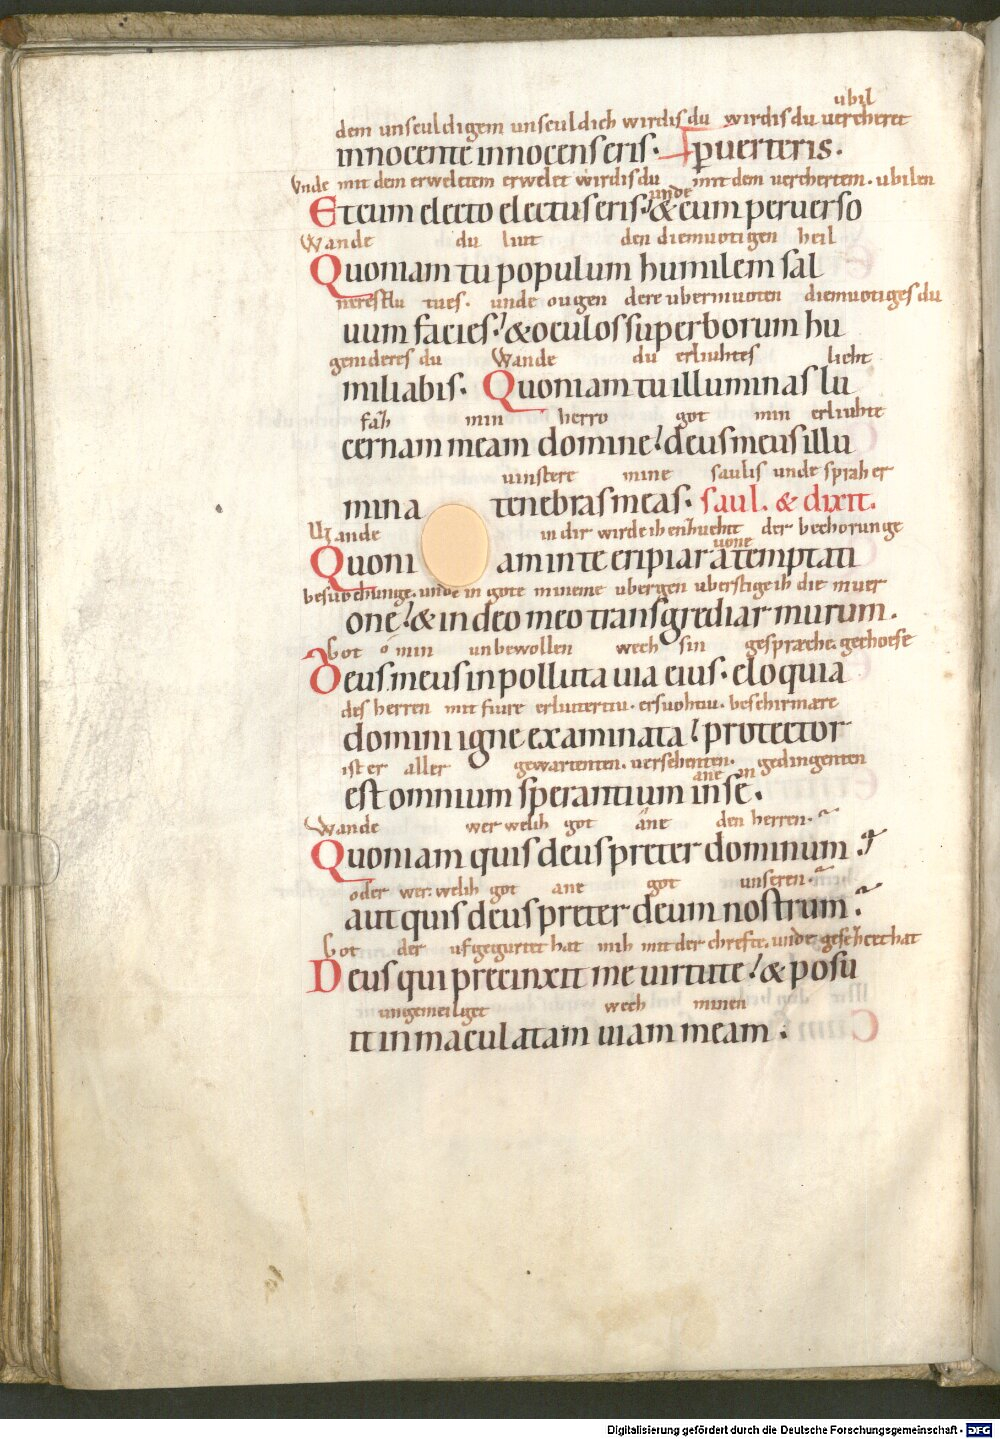 ubil
dem unsculdigem unsculdich wirdis du wirdis du vercheret
innocente innocens eris. puerteris.
Vnde mit dem erweletem erwelet wirdis du mit dem verchertem. ubilen
unde
Et cum electo electus eris: & cum peruerso
Wande du liut den diemuotigen heil
Quoniam tu populum humilem sal
tues. unde ougen dere ubermuoten diemuotiges du
uum facies: & oculos superborum hu
genideres du Wande du erliuhtes lieht
miliabis. Quoniam tu illuminas lu
min herro got min erliuhte
cernam meam domine: deus meus illu
uinstere mine saulis unde sprah er
mina tenebras meas. saul. & dixit.
Wande in dir wirde ih der bechorunge
uone
Quoni am in te eripiar a temptati
besuochunge. unde in gote mineme ubergen uberstige ih die muer
one: & in deo meo transgrediar murum.
Got o min unbewollen wech sin gespræche. gechose
Deus meus in polluta uia eius. eloquia
des herren mit fiure erlutertiu. ersuohtiu. beschirmare
domini igne examinata: protector
ist er aller gewartenten. versehenten. gedingenten
ane in
est omnium sperantium in se.
Wande wer welih got ane den herren.
Quoniam quis deus preter dominum?
oder wer. welih got ane got unseren.
aut quis deus preter deum nostrum?
Got der ufgegurtet hat mih mit der chrefte. unde gesecet hat
Deus qui precinxit me uirtute: & posu
ungemeiliget wech minen
it inmaculatam uiam meam.
Digitalisierung gefördert durch die Deutsche Forschungsgemeinschaft - DFG